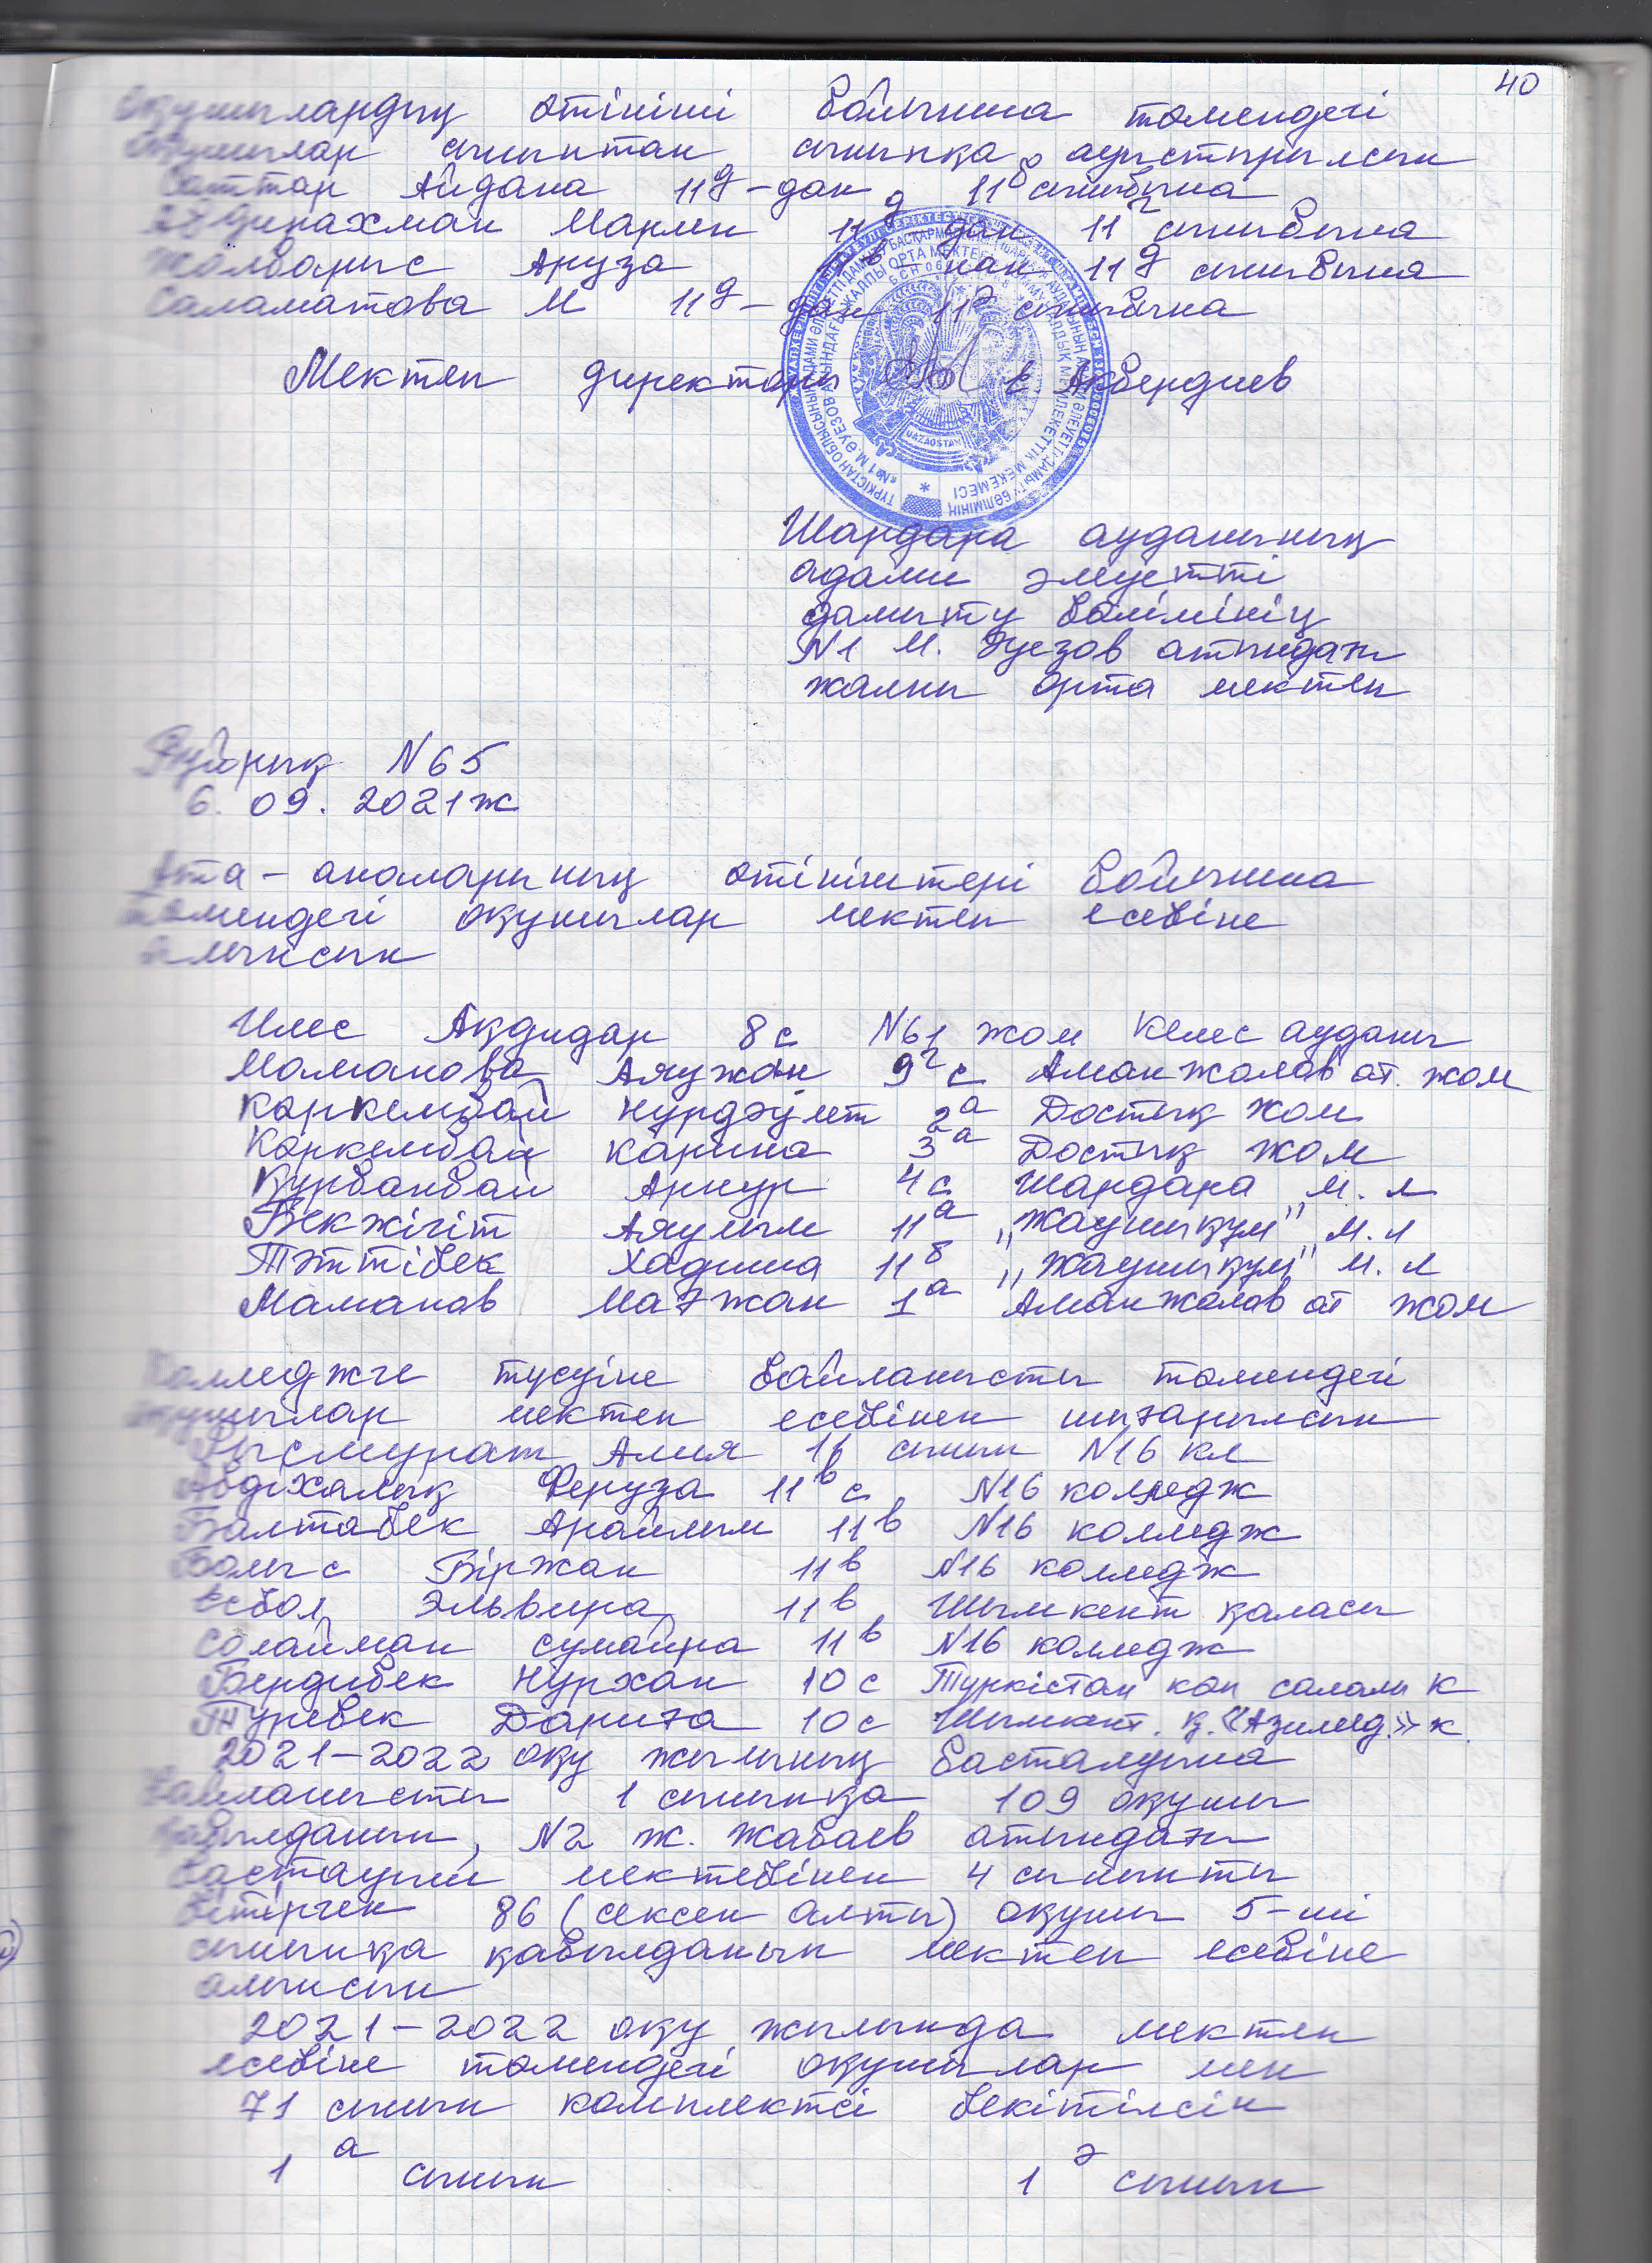 40
Оқушылардың өтініші бойынша төмендегі
оқушылар сыныптан сыныпқа ауыстырылсын
Саттар Айдана 11д-дан 11б сыныбына
Абдирахман Марлен 11д дан 11г сыныбына
Жолбарыс Аруза 11в-нан 11д сыныбына
Саламатова М 11д-дан 11ә сыныбына
Мектеп директоры Е. Акбердиев
QAZAQSTAN
Шардара ауданының
адами әлеуетті
дамыту бөлімінің
N1 М. Әуезов атындағы
жалпы орта мектеп
Бұйрық N65
6. 09. 2021ж
Ата-аналарының өтініштері бойынша
төмендегі оқушылар мектеп есебіне
алынсын
Илес Ақдидар 8с N61 жом Келес ауданы
Маманова Аяужан 9г с Аманжолов ат. жом
Көркембай Нұрдәулет 2а Достық жом
Көркембай Карина 3а Достық жом
Құрбанбай Арнур 4с Шардара м. л
Бекжігіт Аяулым 11а "Жаушықұм" м. л
Тәттібек Хадиша 11б "Жаушықұм" м. л
Маманов Мағжан 1а Аманжолов ат жом
Колледжге түсуіне байланысты төмендегі
оқушылар мектеп есебінен шығарылсын
Рысмурат Алия 11 сынып N16 кл
Абдіхалық Феруза 11в с N16 колледж
Балтабек Арайлым 11в N16 колледж
Болыс Біржан 11в N16 колледж
Есбол Эльвира 11в Шымкент қаласы
Солайман Сумайра 11в N16 колледж
Бердибек Нұрхан 10с Түркістан көп салалы к
Төребек Дариға 10с Шымкент. қ. «Азимед» к.
2021-2022 оқу жылының басталуына
байланысты 1 сыныпқа 109 оқушы
қабылданып, N2 Ж. Жабаев атындағы
бастауыш мектебінен 4 сыныпты
бітірген 86 (сексен алты) оқушы 5-ші
сыныпқа қабылданып мектеп есебіне
алынсын
2021-2022 оқу жылында мектеп
есебіне төмендегі оқушылар мен
71 сынып комплектсі бекітілсін
1а сынып 1ә сынып